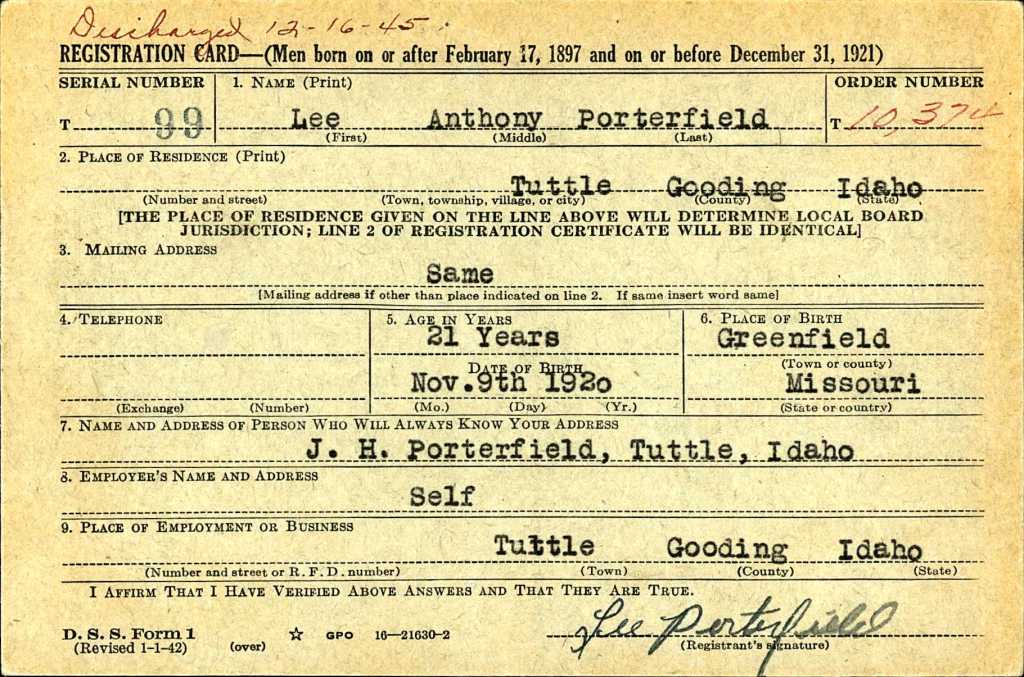 Discharged 12-16-45
REGISTRATION CARD—(Men born on or after February 17, 1897 and on or before December 31, 1921)
SERIAL NUMBER 1. NAME (Print) ORDER NUMBER
T 99 Lee Anthony Porterfield T 10,374
(First) (Middle) (Last)
2. PLACE OF RESIDENCE (Print)
Tuttle Gooding Idaho
(Number and street) (Town, township, village, or city) (County) (State)
[THE PLACE OF RESIDENCE GIVEN ON THE LINE ABOVE WILL DETERMINE LOCAL BOARD
JURISDICTION; LINE 2 OF REGISTRATION CERTIFICATE WILL BE IDENTICAL]
3. MAILING ADDRESS
Same
[Mailing address if other than place indicated on line 2. If same insert word same]
4. TELEPHONE 5. AGE IN YEARS 6. PLACE OF BIRTH
21 Years Greenfield
DATE OF BIRTH (Town or county)
Nov. 9th 1920 Missouri
(Exchange) (Number) (Mo.) (Day) (Yr.) (State or country)
7. NAME AND ADDRESS OF PERSON WHO WILL ALWAYS KNOW YOUR ADDRESS
J. H. Porterfield, Tuttle, Idaho
8. EMPLOYER'S NAME AND ADDRESS
Self
9. PLACE OF EMPLOYMENT OR BUSINESS
Tuttle Gooding Idaho
(Number and street or R. F. D. number) (Town) (County) (State)
I AFFIRM THAT I HAVE VERIFIED ABOVE ANSWERS AND THAT THEY ARE TRUE.
Lee Porterfield
D. S. S. Form 1 ☆ GPO 16—21630-2
(Revised 1-1-42) (over) (Registrant's signature)